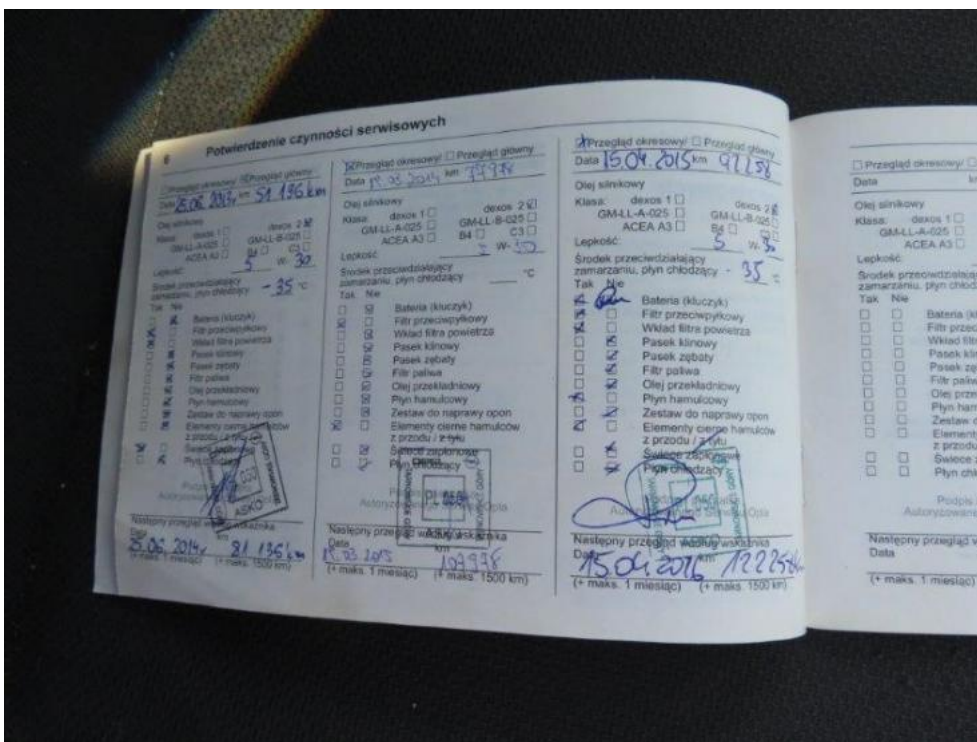 6 Potwierdzenie czynności serwisowych
☐Przegląd okresowy/ ☒Przegląd główny
Data 25.06.2013r km 51 136 km
Olej silnikowy
Klasa: dexos 1 ☐ dexos 2 ☒
GM-LL-A-025 ☐ GM-LL-B-025 ☐
ACEA A3 ☐ B4 ☐ C3 ☐
Lepkość: 5 W- 30
Środek przeciwdziałający
zamarzaniu, płyn chłodzący - 35 °C
Tak Nie
Bateria (kluczyk)
Filtr przeciwpyłkowy
Wkład filtra powietrza
Pasek klinowy
Pasek zębaty
Filtr paliwa
Olej przekładniowy
Płyn hamulcowy
Zestaw do naprawy opon
Elementy cierne hamulców
z przodu / z tyłu
Świece zapłonowe
Płyn chłodzący
ASKO
Następny przegląd według wskaźnika
25.06.2014r 81 136 km
(+ maks. 1 miesiąc) (+ maks. 1500 km)
☒Przegląd okresowy/ ☐ Przegląd główny
Data 03 2014 km 77978
Olej silnikowy
Klasa: dexos 1 ☐ dexos 2 ☒
GM-LL-A-025 ☐ GM-LL-B-025 ☐
ACEA A3 ☐ B4 ☐ C3 ☐
Lepkość W-
Środek przeciwdziałający
zamarzaniu, płyn chłodzący °C
Tak Nie
Bateria (kluczyk)
Filtr przeciwpyłkowy
Wkład filtra powietrza
Pasek klinowy
Pasek zębaty
Filtr paliwa
Olej przekładniowy
Płyn hamulcowy
Zestaw do naprawy opon
Elementy cierne hamulców
z przodu / z tyłu
Świece zapłonowe
Płyn chłodzący
Następny przegląd według wskaźnika
Data km
03 2015 107978
(+ maks. 1 miesiąc) (+ maks. 1500 km)
☒Przegląd okresowy/ ☐ Przegląd główny
Data 15.04.2015 km 92258
Olej silnikowy
Klasa: dexos 1 ☐ dexos 2 ☒
GM-LL-A-025 ☐ GM-LL-B-025 ☐
ACEA A3 ☐ B4 ☐ C3 ☐
Lepkość: 5 W- 30
Środek przeciwdziałający
zamarzaniu, płyn chłodzący - 35 °C
Tak Nie
Bateria (kluczyk)
Filtr przeciwpyłkowy
Wkład filtra powietrza
Pasek klinowy
Pasek zębaty
Filtr paliwa
Olej przekładniowy
Płyn hamulcowy
Zestaw do naprawy opon
Elementy cierne hamulców
z przodu / z tyłu
Świece zapłonowe
Płyn chłodzący
Następny przegląd według wskaźnika
Data km
15.04.2016 122258km
(+ maks. 1 miesiąc) (+ maks. 1500 km)
☐ Przegląd okresowy/ ☐
Data
Olej silnikowy
Klasa: dexos 1 ☐
GM-LL-A-025 ☐
ACEA A3 ☐
Lepkość:
Środek przeciwdziałający
zamarzaniu, płyn chłodz
Tak Nie
Bateria (kl
Filtr przec
Wkład filtr
Pasek klin
Pasek zę
Filtr paliw
Olej prze
Płyn ham
Zestaw d
Elementy
z przodu
Świece z
Płyn chł
Podpis
Autoryzowan
Następny przegląd w
Data
(+ maks. 1 miesiąc)